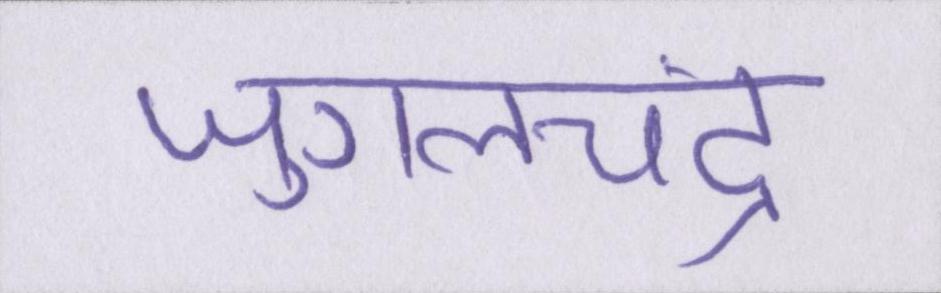 जुगलचंद्र